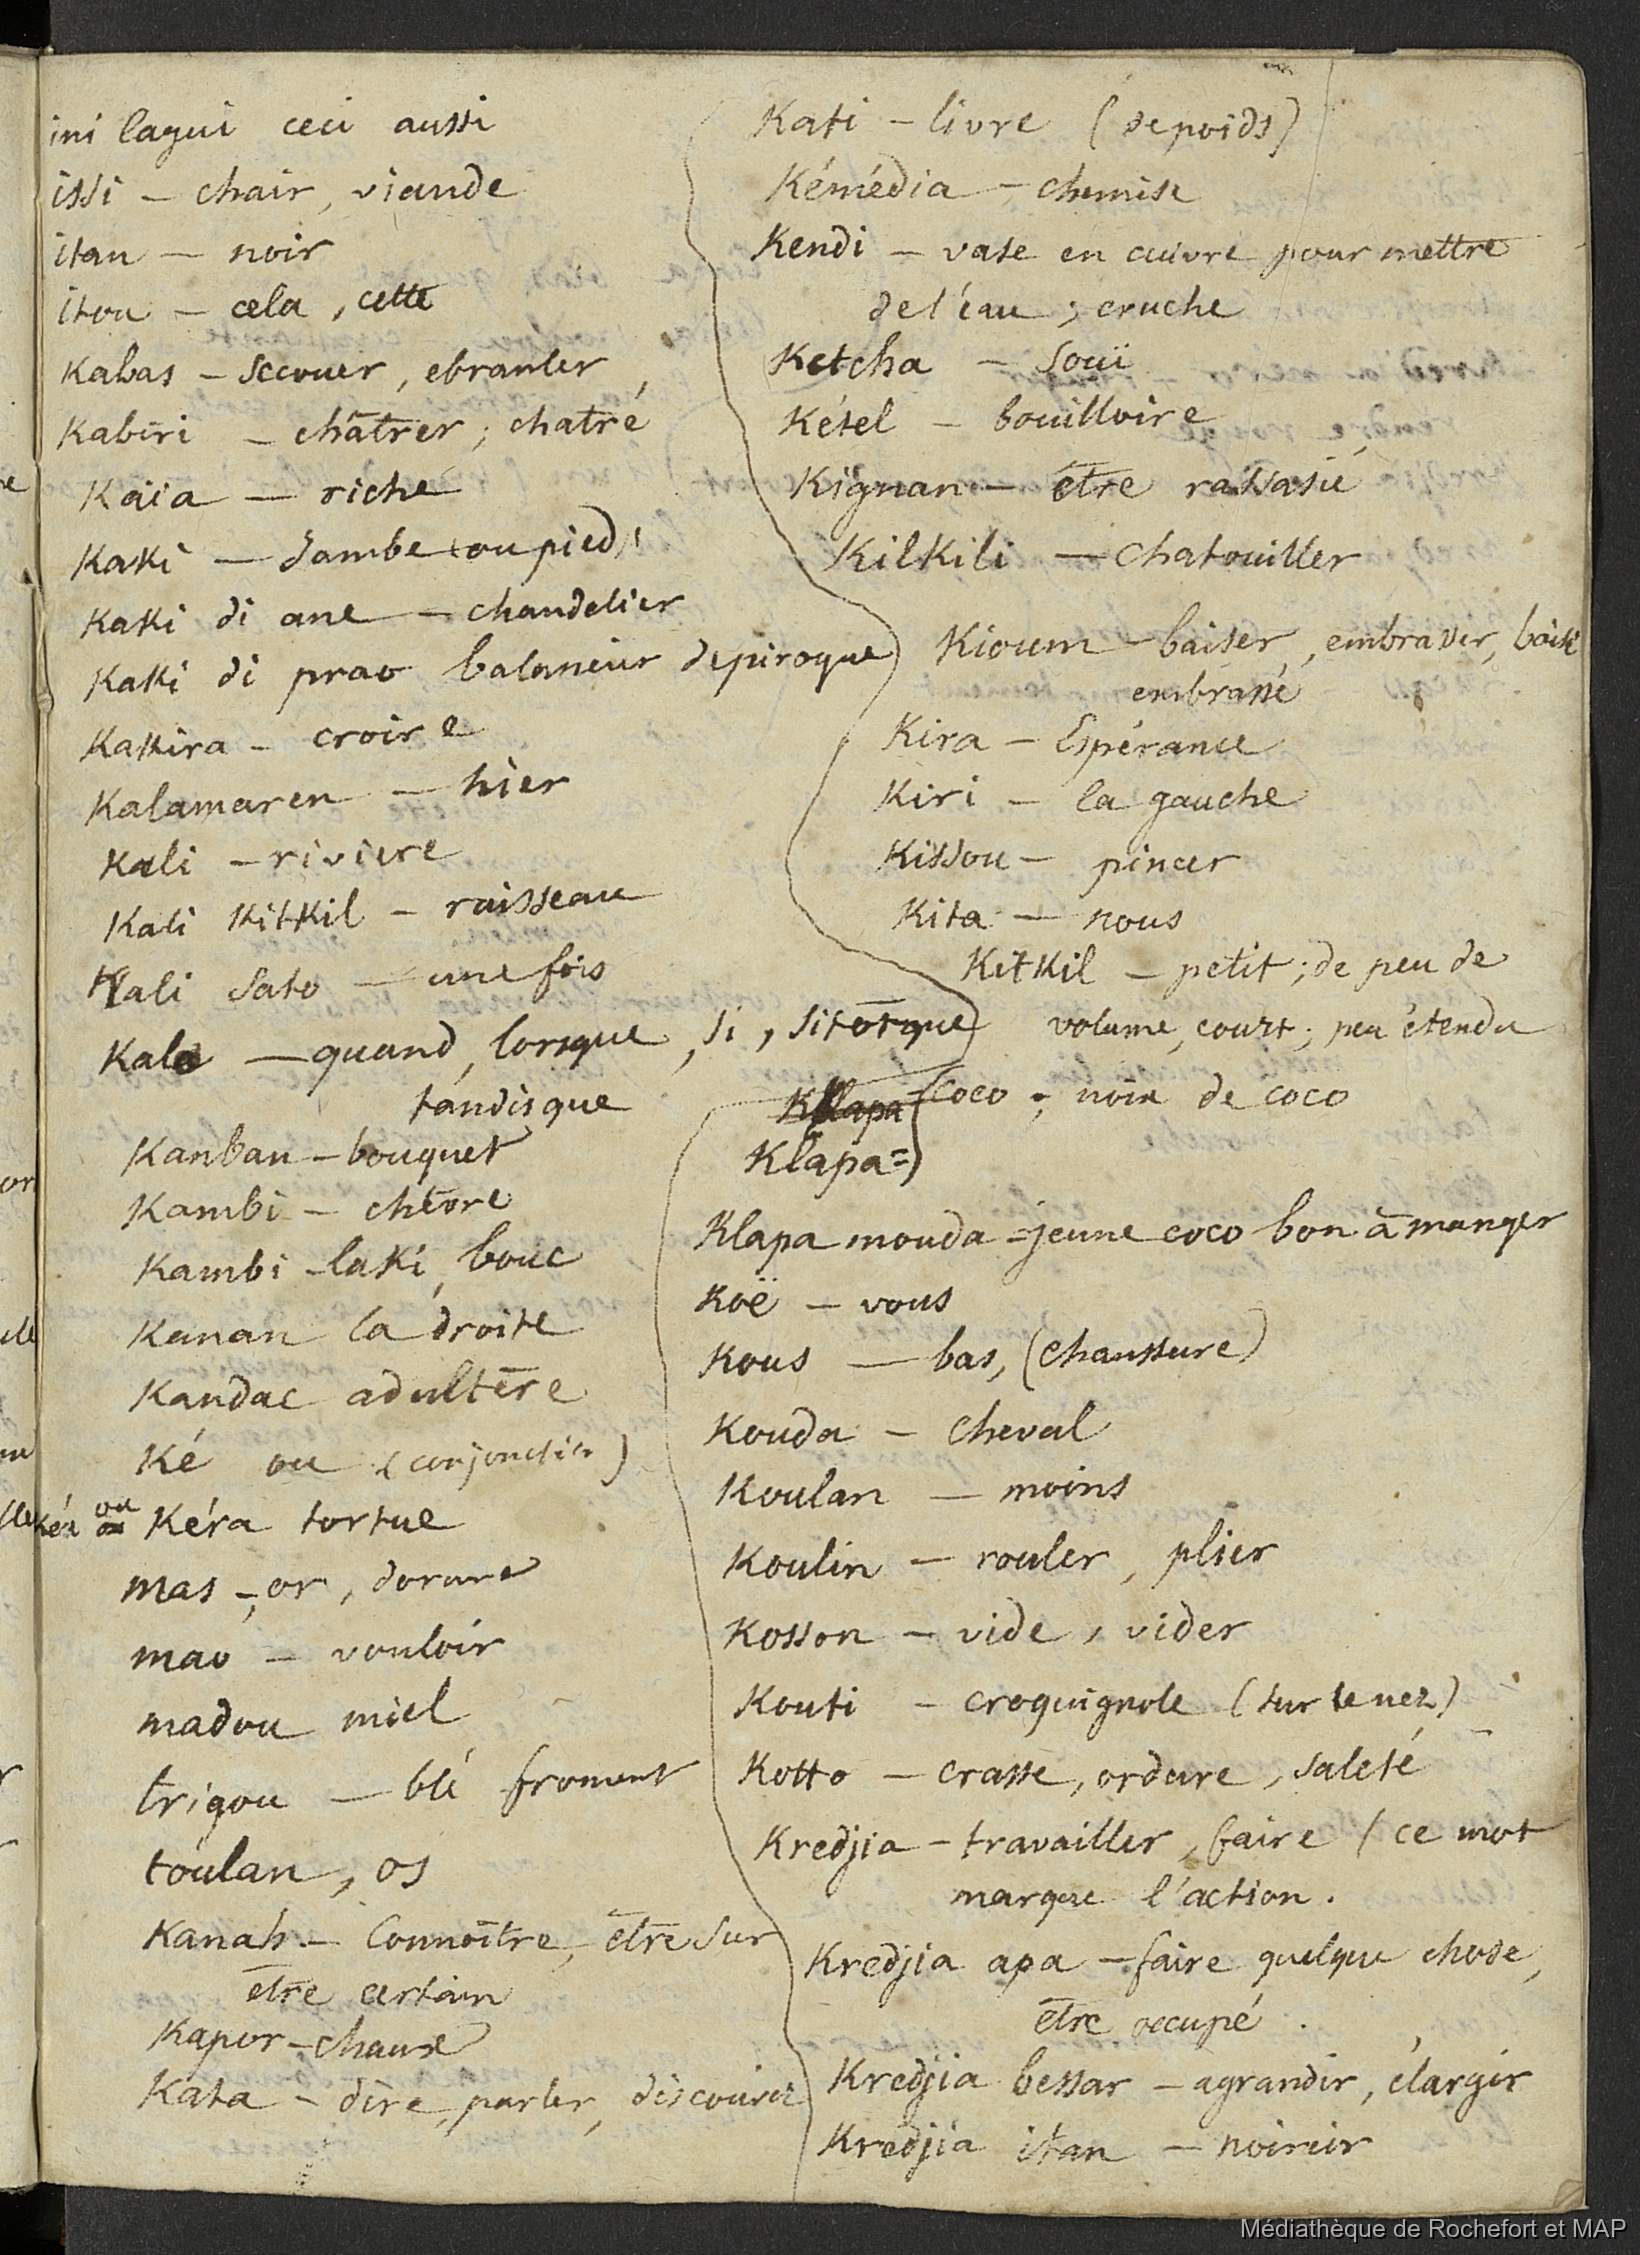 ini lagui ceci aussi
issi - chair, viande
itan - noir
itou - cela, cette
Kabas - secouer, ebranler,
Kabiri - châtrer; chatré
Kaia - riche
Kaki - Jambe (ou pied)
Kaki di ane - chandelier
Kaki di prao balancier de pirogue
Kakira - croire
Kalamaren - hier
Kali - riviere
Kali Kitkil - ruisseau
Kali Sato - une fois
Kalo - quand, lorsque, si, sitôt que
tandisque
Kanban - bouquet
Kambi - chèvre
Kambi - laki, bouc
Kanan la droite
Kandac adultère
Ké ou (conjonction)
ou Kéra tortue
mas -, or, dorure
mao - vouloir
madou miel
trigou - blé froment
toulan, os
Kanah - Connoître, être sur
être certain
Kapor - chaux
Kata - dire, parler, discourir
Kati - livre (de poids)
Kémédia - chemise
Kendi - vase en cuivre pour mettre
de l'eau; cruche
Ketcha - Souï
Kétel - bouilloire
Kignan - être rassasié
Kilkili - Chatouiller
Kioum - baiser, embrasser, baisé
embrassé
Kira - Espérance
Kiri - la gauche
Kissou - pincer
Kita - nous
Kitkil - petit; de peu de
volume, court; peu étendu
Klapa - coco; noix de coco
Klapa =
Klapa mouda = jeune coco bon à manger
Koë - vous
Kous - bas, (chaussure)
Kouda - Cheval
Koulan - moins
Koulin - rouler, plier
Kosson - vide, vider
Kouti - croquignole (sur le nez)
Kotto - crasse, ordure, saleté
Kredjia - travailler, faire (ce mot
marque l'action.
Kredjia apa - faire quelque chose,
être occupé.
Kredjia bessar - agrandir, élargir
Kredjia itan - noircir
Médiathèque de Rochefort et MAP